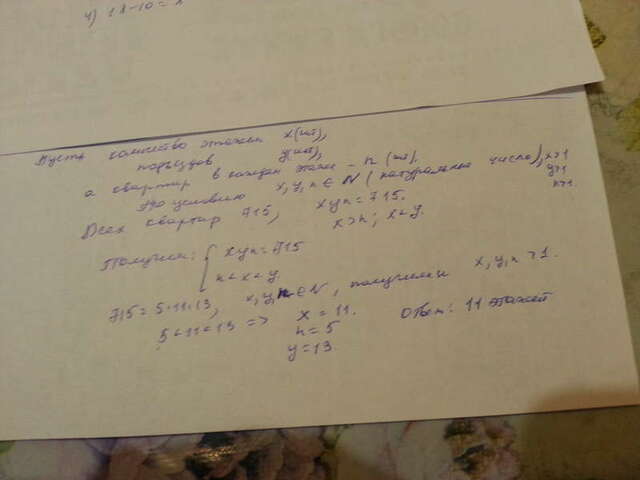 4) 18-10=
Пусть количество этажей x(шт),
подъездов y(шт),
а квартир в каждом этаже - n (шт).
По условию x,y,n ∈ N (натуральные числа), x>1
y>1
n>1.
Всех квартир 715, xyn=715.
x>n; x<y.
Получим: { xyn=715
n<x<y
715=5·11·13, x,y,n∈N, получили x,y,n>1.
5<11<13 => x=11. Ответ: 11 этажей
n=5
y=13